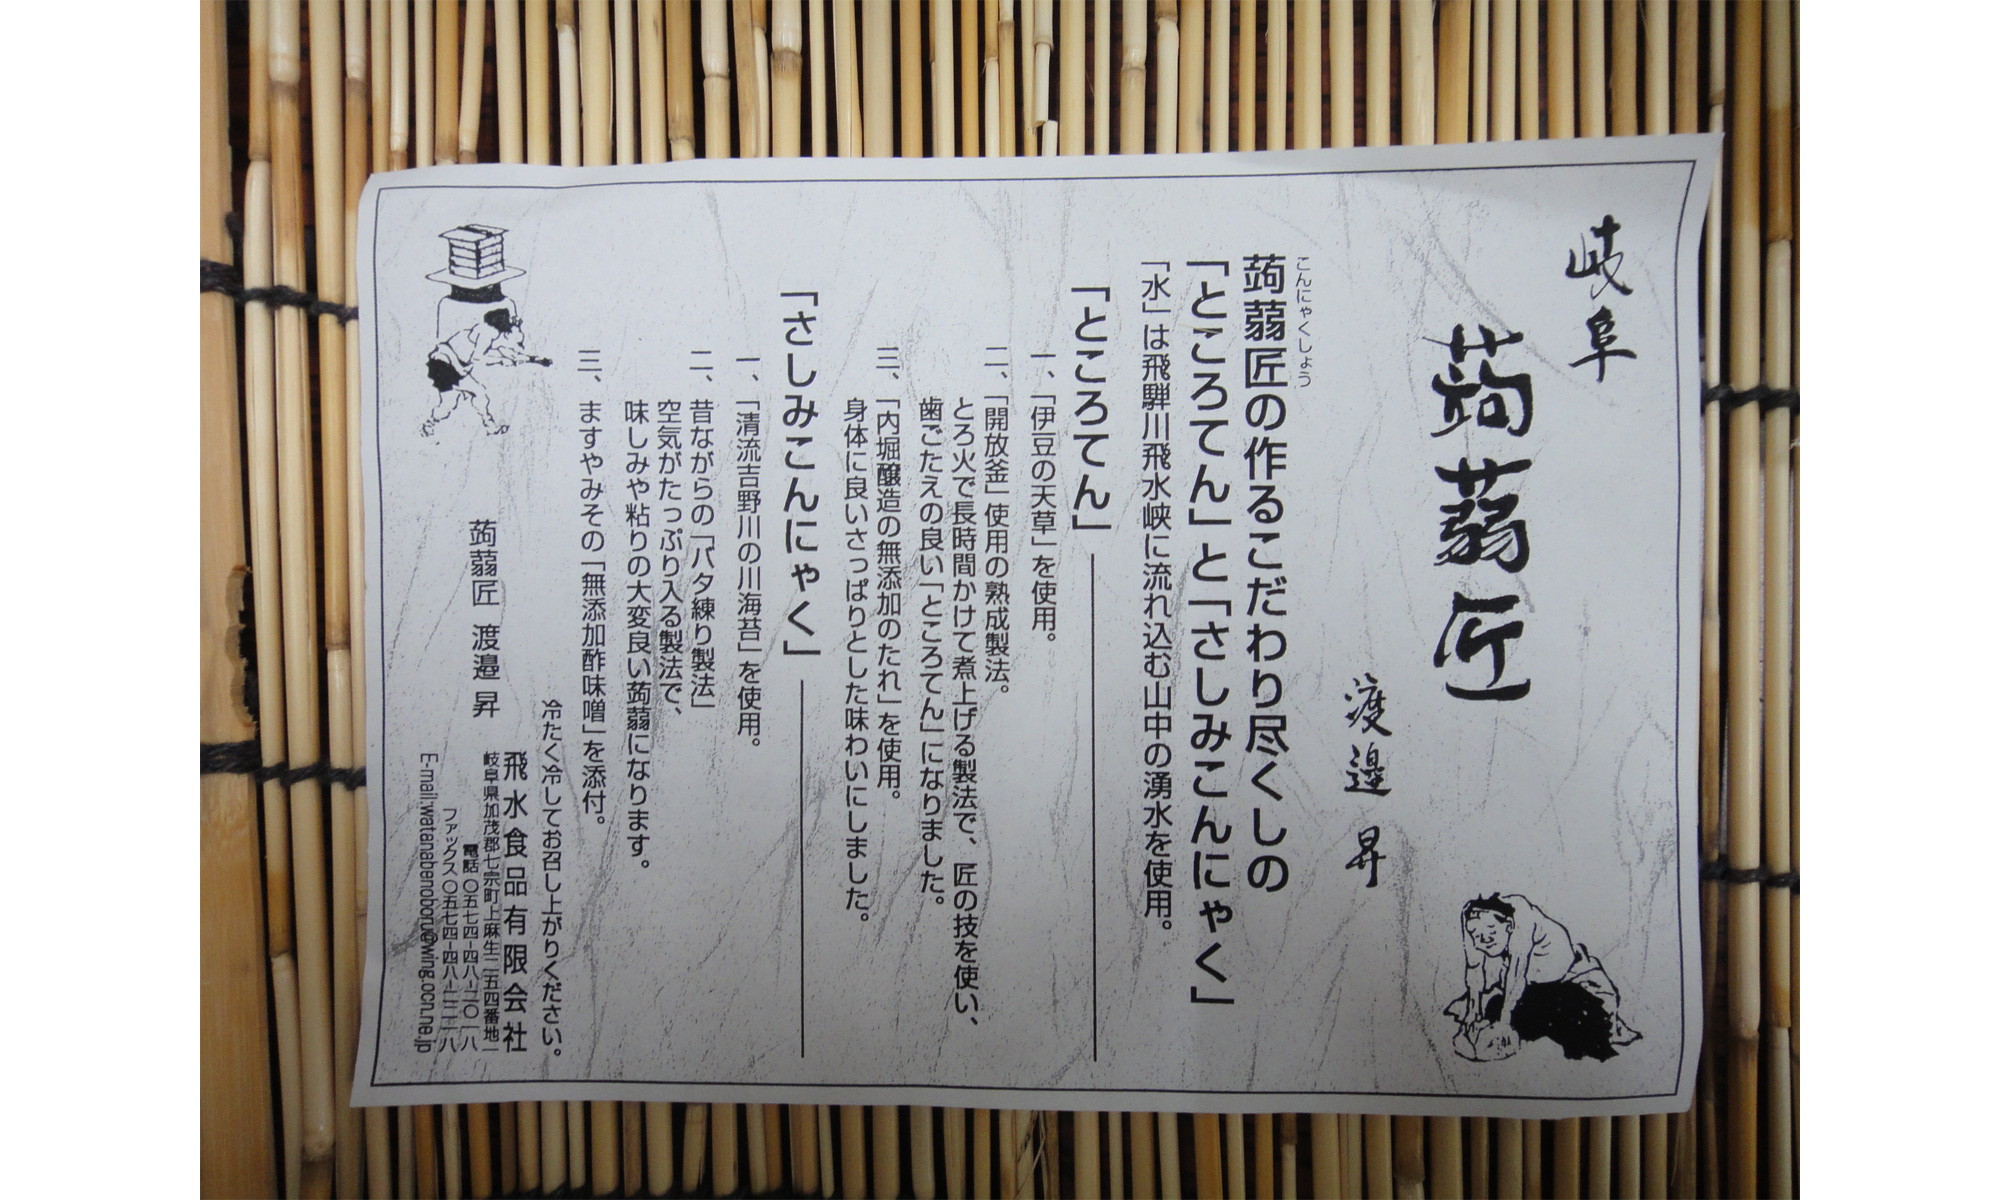 岐阜
蒟蒻匠
渡邉 昇
こんにゃくしょう
蒟蒻匠の作るこだわり尽くしの
「ところてん」と「さしみこんにゃく」
「水」は飛騨川飛水峡に流れ込む山中の湧水を使用。
「ところてん」
一、「伊豆の天草」を使用。
二、「開放釜」使用の熟成製法。
とろ火で長時間かけて煮上げる製法で、匠の技を使い、
歯ごたえの良い「ところてん」になりました。
三、「内堀醸造の無添加のたれ」を使用。
身体に良いさっぱりとした味わいにしました。
「さしみこんにゃく」
一、「清流吉野川の川海苔」を使用。
二、昔ながらの「バタ練り製法」
空気がたっぷり入る製法で、
味しみや粘りの大変良い蒟蒻になります。
三、ますやみその「無添加酢味噌」を添付。
冷たく冷してお召し上がりください。
蒟蒻匠 渡邉 昇
飛水食品有限会社
岐阜県加茂郡七宗町上麻生二五四番地一
電話〇五七四-四八-二〇一八
ファックス〇五七四-四八-二二一八
E-mail:watanabenoboru@wing.ocn.ne.jp